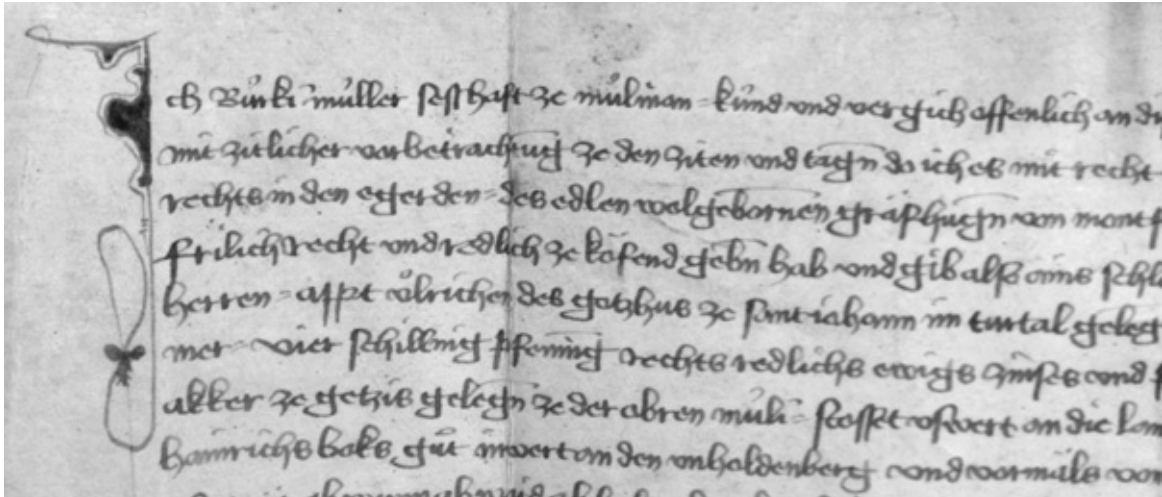 Ich Bürki müller sesshaft ze mülinan künd vnd vergich offenlich an di
mit zitlicher vorbetrachtung ze den ziten vnd tagn do ich es mit recht
rechts in den egerden des edlen wolgebornen graf hugn von montf
frilich recht vnd redlich ze kofend gebn hab vnd gib alss ains schl
herren appt ůlrichen des gotzhus ze sant iohann im turtal geleg
mer vier schilling pfening rechts redlichs ewigs zinses vnd
akker ze getzis gelegn ze der obren müli stosset vswert an die lan
hainrichs boks gůt inwert an den vnholdenberg vnd vormals vor